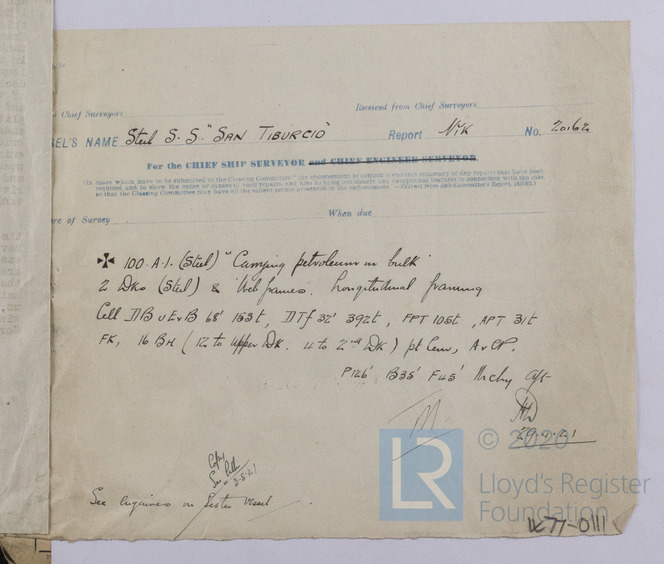 Chief Surveyors
Received from Chief Surveyors
SEL'S NAME Steel S.S. "SAN TIBURCIO" Report N.Yk No. 20162
For the CHIEF SHIP SURVEYOR and CHIEF ENGINEER SURVEYOR
(In cases which have to be submitted to the Classing Committee "the endorsement to contain a succinct summary of any repairs that have been
required and to show the cause or causes of such repairs, and also to bring out clearly any exceptional features in connection with the case
so that the Classing Committee may have all the salient points presented in the endorsement."
of Survey When due
✠ 100.A.1. (Steel) "Carrying petroleum in bulk"
2 Dks (Steel) & Web frames. Longitudinal framing
Cell DB u E & B 68' 153t, DTf 32' 392t, FPT 105t, APT 31t
FK, 16 BH (12 to Upper Dk. 4 to 2nd Dk) pt Cem, A & CP.
P126' B35' F45' Mchy aft
29.4.21
Copy
See
3-5-21
See enquiries on Sister Vessel
© 2020
LR
Lloyd's Register
Foundation
1K77-0111